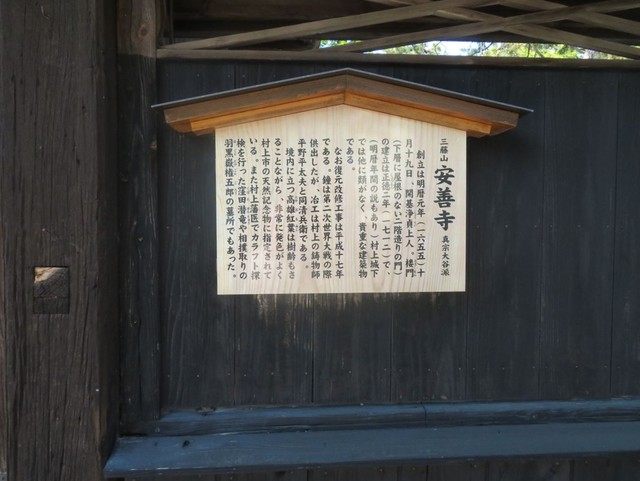 三藤山 安善寺 真宗大谷派
創立は明暦元年(一六五五)十
月十九日、開基浄貞上人。楼門
(下層に屋根のない二階造りの門)
の建立は正徳二年(一七一二)で、
(明暦年間の説もあり)村上城下
では他に類がなく、貴重な建築物
である。
なお復元改修工事は平成十七年
である。鐘は第二次世界大戦の際
供出したが、冶工は村上の鋳物師
平野平太夫と同清兵衛である。
境内に立つ高雄紅葉は樹齢もさ
ることながら、非常に発色がよく
村上市の天然記念物に指定されて
いる。また村上藩医でカラフト探
検を行った窪田潜竜や相撲取りの
羽黒嶽権五郎の墓所でもあった。